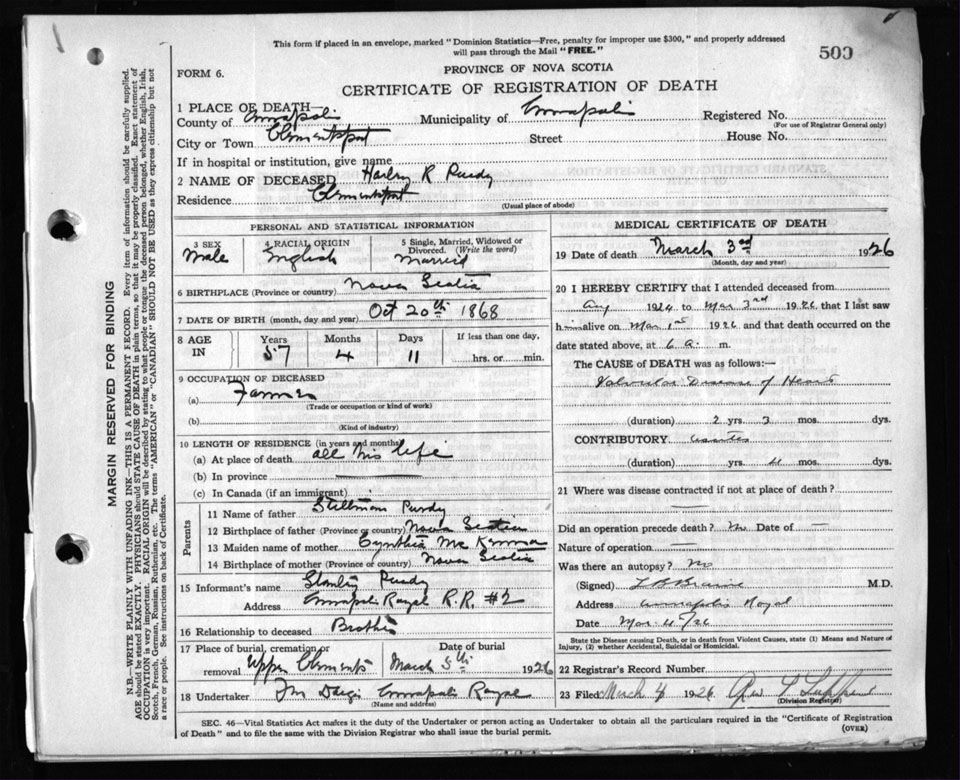 This form if placed in an envelope, marked "Dominion Statistics—Free, penalty for improper use $300," and properly addressed
will pass through the Mail "FREE."
500
FORM 6.
PROVINCE OF NOVA SCOTIA
CERTIFICATE OF REGISTRATION OF DEATH
1 PLACE OF DEATH
County of Annapolis Municipality of Annapolis Registered No.
(For use of Registrar General only)
City or Town Clementsport Street House No.
If in hospital or institution, give name
2 NAME OF DECEASED R Purdy
Residence Clementsport
(Usual place of abode)
MARGIN RESERVED FOR BINDING
N.B.—WRITE PLAINLY WITH UNFADING INK—THIS IS A PERMANENT RECORD. Every item of information should be carefully supplied.
AGE should be stated EXACTLY. PHYSICIANS should STATE CAUSE OF DEATH in plain terms, so that it may be properly classified. Exact statement of
OCCUPATION is very important. RACIAL ORIGIN will be described by stating to what people or tongue the deceased person belonged, whether English, Irish,
Scotch, French, German, Russian, Ruthenian, etc. The terms "AMERICAN" or "CANADIAN" SHOULD NOT BE USED as they express citizenship but not
a race or people. See instructions on back of Certificate.
PERSONAL AND STATISTICAL INFORMATION
3 SEX
Male
4 RACIAL ORIGIN
English
5 Single, Married, Widowed or
Divorced. (Write the word)
Married
6 BIRTHPLACE (Province or country) Nova Scotia
7 DATE OF BIRTH (month, day and year) Oct 20th 1868
8 AGE
IN
Years Months Days If less than one day,
57 4 11 hrs. or min.
9 OCCUPATION OF DECEASED
(a) Farmer
(Trade or occupation or kind of work)
(b)
(Kind of industry)
10 LENGTH OF RESIDENCE (in years and months)
(a) At place of death all his life
(b) In province
(c) In Canada (if an immigrant)
Parents
11 Name of father Stillman Purdy
12 Birthplace of father (Province or country) Nova Scotia
13 Maiden name of mother Cynthia Mc
14 Birthplace of mother (Province or country) Nova Scotia
15 Informant's name Stanley Purdy
Address Annapolis Royal R.R. #2
16 Relationship to deceased Brother
17 Place of burial, cremation or
removal Upper Clements
Date of burial
March 5th 1926
18 Undertaker Annapolis Royal
(Name and address)
MEDICAL CERTIFICATE OF DEATH
19 Date of death March 3rd 1926
(Month, day and year)
20 I HEREBY CERTIFY that I attended deceased from
Aug 1924 to Mar 3rd 1926 that I last saw
him alive on Mar 1st 1926 and that death occurred on the
date stated above, at 6 a. m.
The CAUSE OF DEATH was as follows:—
Valvular Disease of Heart
(duration) 2 yrs. 3 mos. dys.
CONTRIBUTORY
(duration) yrs. 4 mos. dys.
21 Where was disease contracted if not at place of death?
—
Did an operation precede death? no Date of —
Nature of operation —
Was there an autopsy? No
(Signed) M.D.
Address Annapolis Royal
Date Mar 4/26
State the Disease Causing Death, or in death from Violent Causes, state (1) Means and Nature of
Injury, (2) whether Accidental, Suicidal or Homicidal.
22 Registrar's Record Number
23 Filed March 4 1926
(Division Registrar)
SEC. 46—Vital Statistics Act makes it the duty of the Undertaker or person acting as Undertaker to obtain all the particulars required in the "Certificate of Registration
of Death" and to file the same with the Division Registrar who shall issue the burial permit.
(OVER)